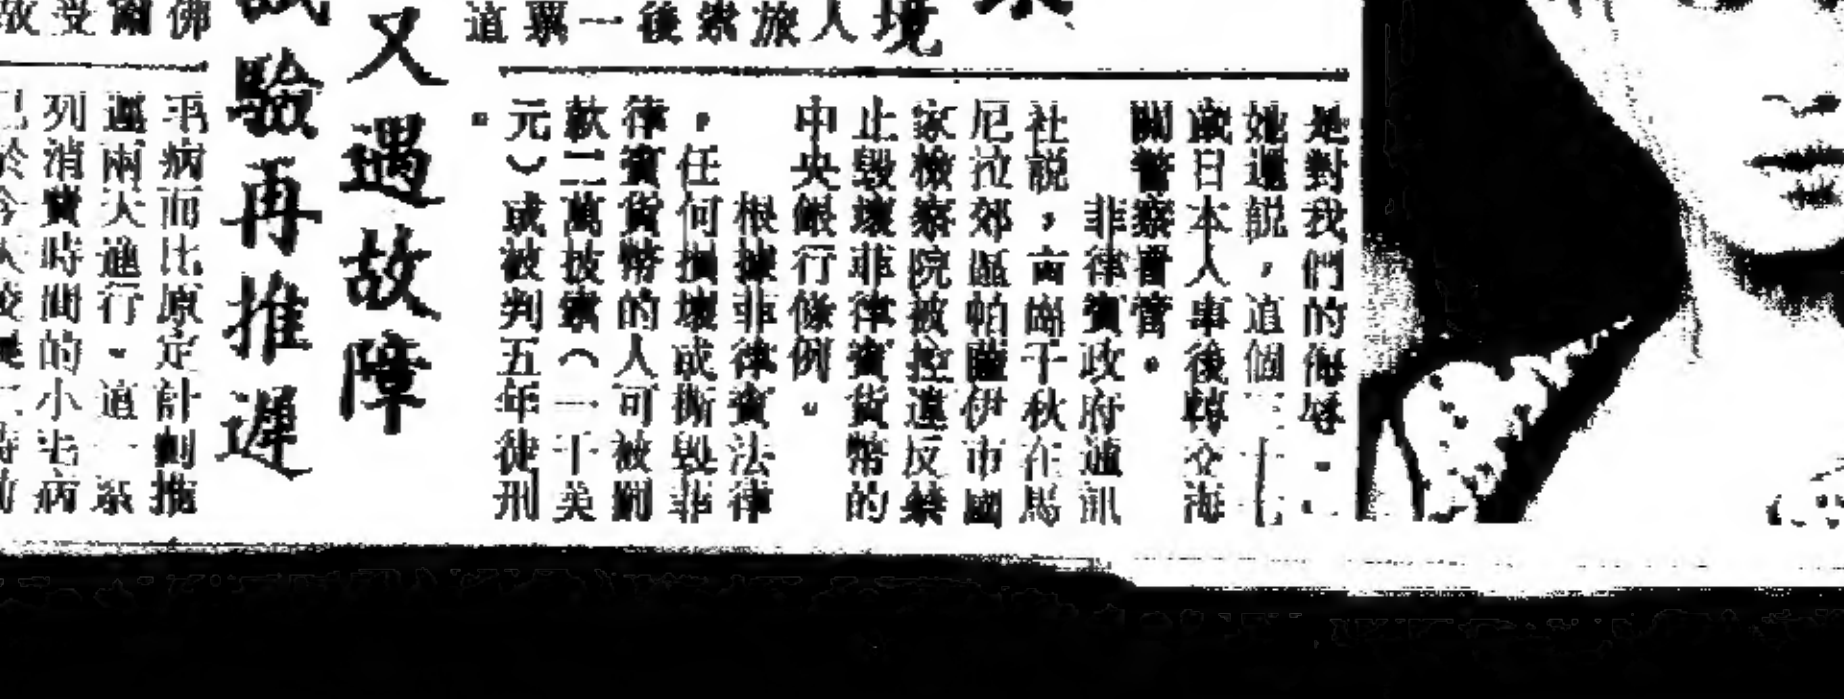 境人旅
後一票
是對我們的侮辱。」
她還說,這個三十七
歲日本人事後轉交海
關警察看管。
菲律賓政府通訊
社説,千秋在馬
尼泣郊區帕薩伊市國
家檢察院被控違反禁
止毀壞菲律賓貨幣的
中央銀行條例。
根據菲律賓法律
,任何損壞或撕毀菲
律賓貨幣的人可被罰
款二萬披索(一千美
元)或被判五年徒刑
。
又遇故障
試驗再推遲
佛爾受
毛病而比原定計劃推
遲兩天進行。這一系
列消費時間的小毛病